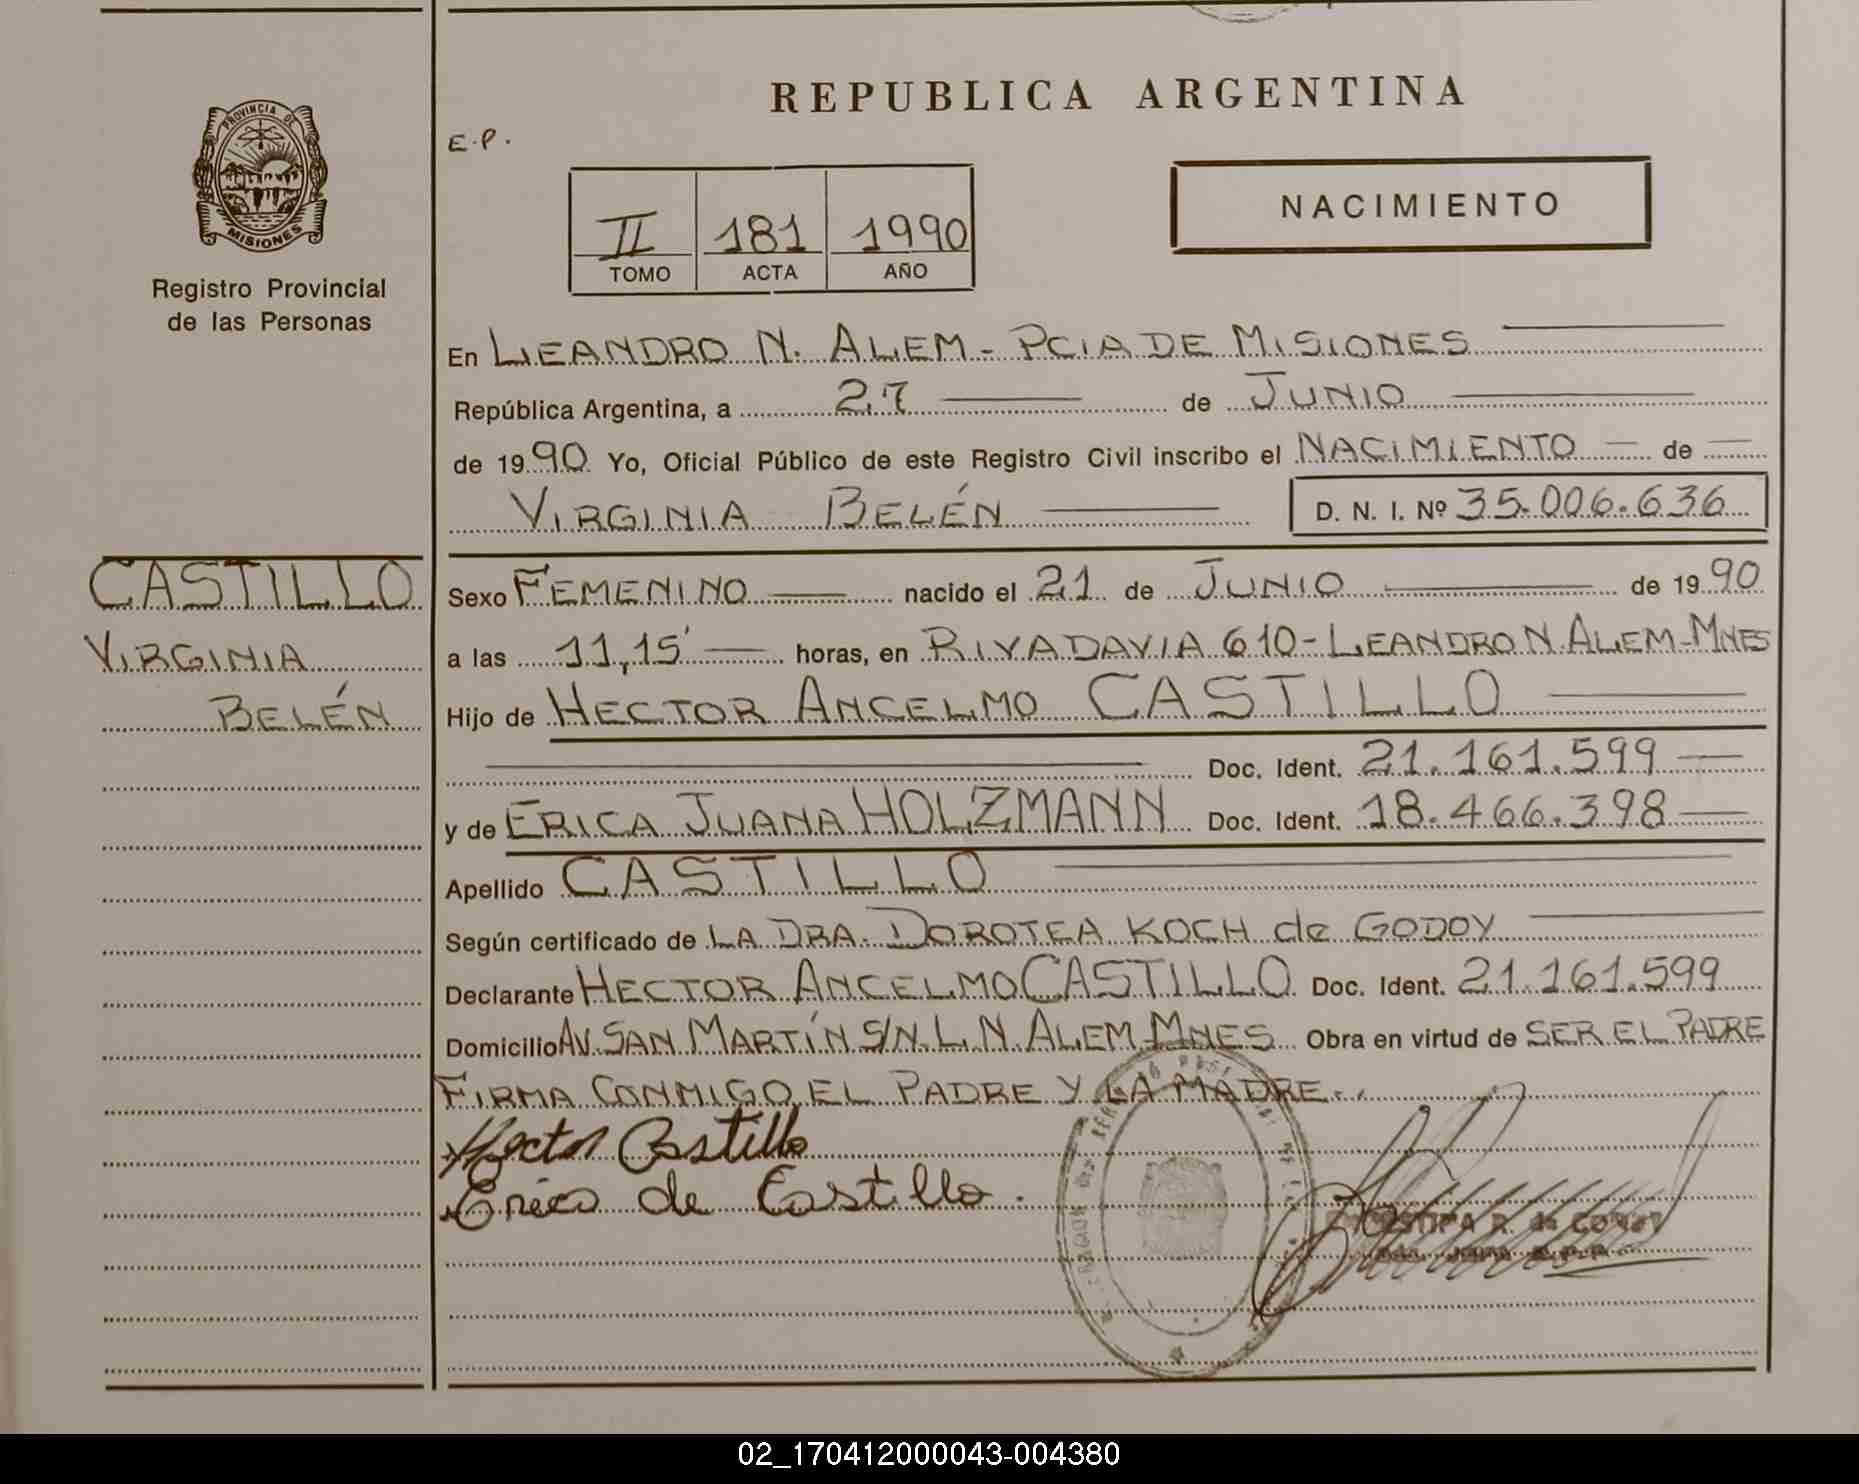 REPUBLICA ARGENTINA
PROVINCIA DE
MISIONES
Registro Provincial
de las Personas
E.P.
II 181 1990
TOMO ACTA AÑO
NACIMIENTO
En LEANDRO N. ALEM - PCIA DE MISIONES
República Argentina, a 27 de JUNIO
de 1990 Yo, Oficial Público de este Registro Civil inscribo el NACIMIENTO de
VIRGINIA BELÉN D. N. I. Nº 35.006.636
CASTILLO
VIRGINIA
BELÉN
Sexo FEMENINO nacido el 21 de JUNIO de 1990
a las 11,15' horas, en RIVADAVIA 610 - LEANDRO N. ALEM - MNES
Hijo de HECTOR ANCELMO CASTILLO
Doc. Ident. 21.161.599
y de ERICA JUANA HOLZMANN Doc. Ident. 18.466.398
Apellido CASTILLO
Según certificado de LA DRA. DOROTEA KOCH de GODOY
Declarante HECTOR ANCELMO CASTILLO Doc. Ident. 21.161.599
Domicilio AV. SAN MARTÍN S/N. L. N. ALEM MNES Obra en virtud de SER EL PADRE
FIRMA CONMIGO EL PADRE Y LA MADRE.
Hector Castillo
Erica de Castillo.
02_170412000043-004380